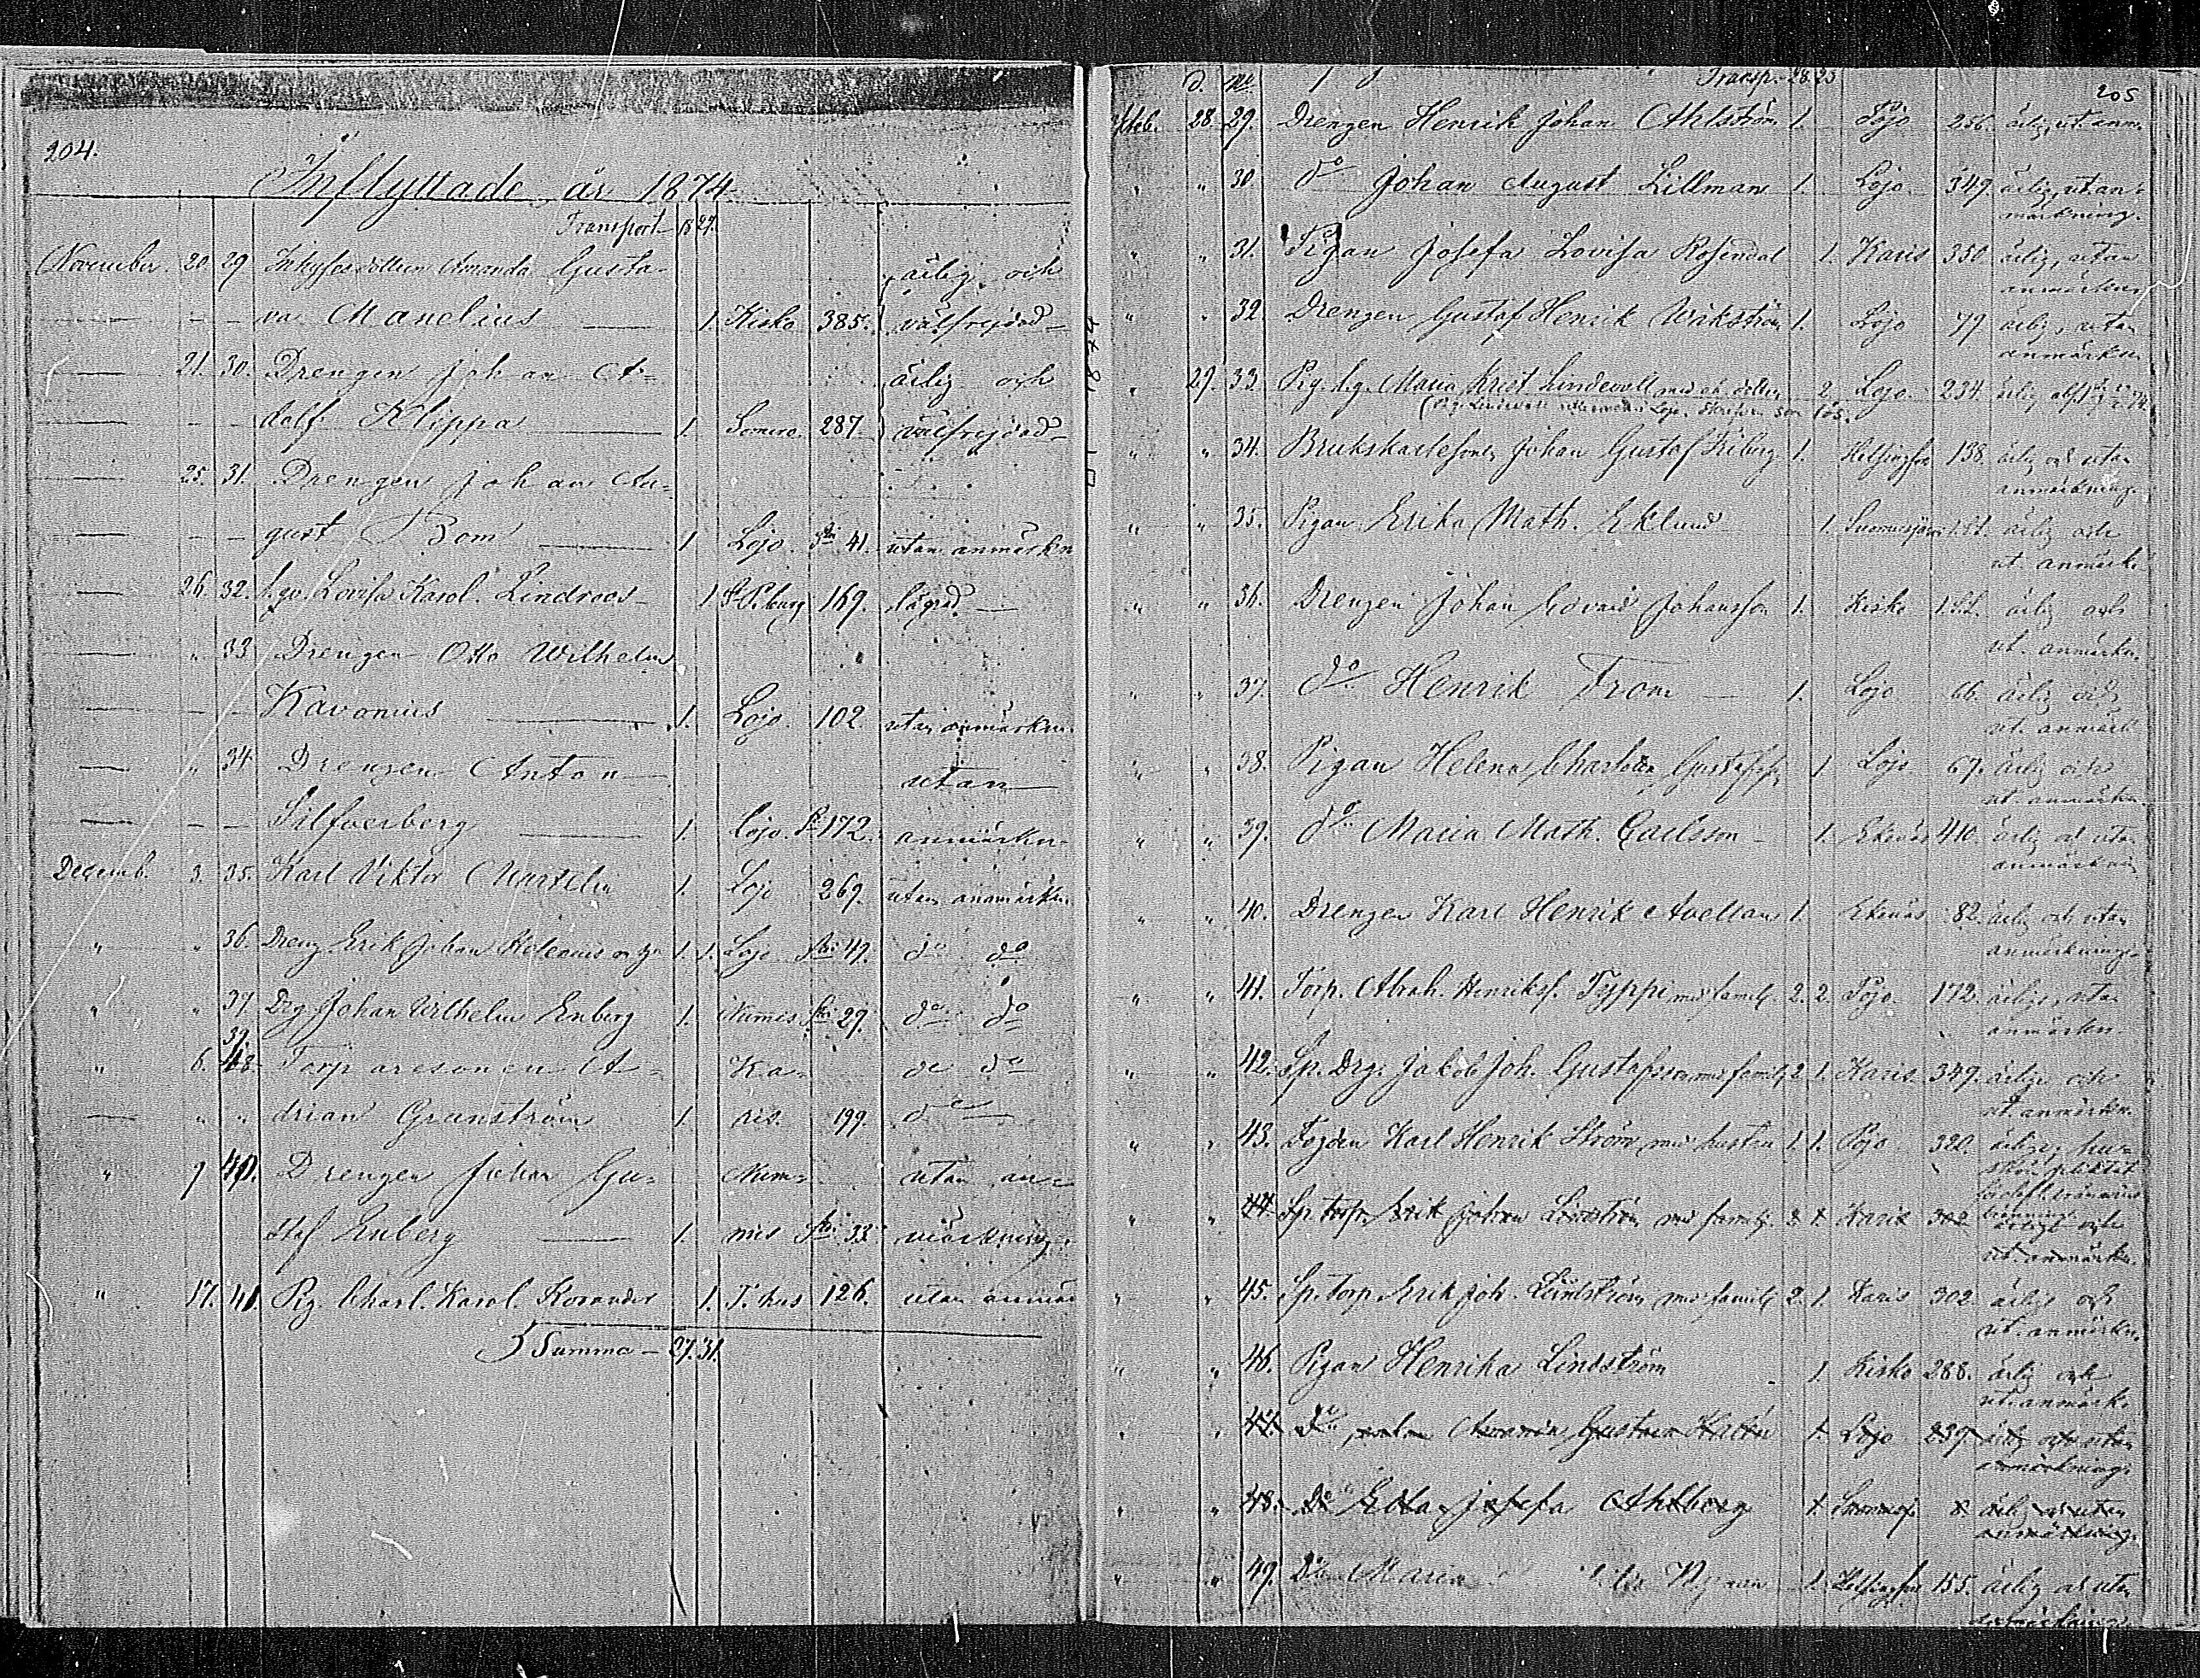 204.
Inflyttade år 1874
Transport 18 27.
November. 20 29 Inhysesdottren Amanda Gusta- ärlig och
— - - va Manelius — 1. Kisko 385. välfrejdad
— 21. 30. Drengen Johan A- ärlig och
— - - dolf Klippa — 1. Somero. 287. välfrejdad
— 25. 31. Drengen Johan Au-
— - - gust Bom — 1 Lojo. 41. utan anmärkn
— 26. 32. Lovisa Karol. Lindroos 1 St P.burg 169.
— " 33 Drengen Otto Wilhelm
— - - Kavonius — 1. Lojo. 102 utan anmärkn.
— " 34 Drengen Anton — utan
— - - Silfverberg — 1. Lojo. 172. anmärkn.
Decemb. 3. 35. Karl Viktor 1. Lojo 269. utan anmärkn.
" " 36. Dreng Erik Johan 1. 1. Lojo 49. do do
" " 37 Drg Johan Wilhelm Enberg 1. Numis 29. do do
39.
" 6. Torparesonen A- Ka- do do
— " " drian Granström 1. ris. 199. do
" 7 40. Drengen Johan Gu- Num- utan an-
staf Enberg — 1. mis 33. märkning.
" 17. 41. Pig. Charl. Karol. Korander 1. T.hus 126. utan anmär
Summa — 27. 31.
d. No Transp. 28. 25
205
28. 29. Drengen Henrik Johan Ahlström 1. Pojo 256. ärlig, ut. anm.
" " 30 do Johan August Lillman 1. Lojo. 349 ärlig, utan
märkning.
" " 31. Pigan Josefa Lovisa Rosendal 1. Karis 350 ärlig, utan
anmärkn.
" " 32. Drengen Gustaf Henrik Wikström 1. Lojo 79 ärlig, utan
anmärkn.
" 29. 33. Pig. Maria Krist. Lindevall med oä. dotter 2. Lojo. 234. ärlig
" " 34. Brukskarlesonen Johan Gustaf Friberg 1. Helsingfors 138. ärlig och utan
anmärkning.
" " 35. Pigan Erika Math. Eklund 1. Suomusjärvi ärlig och
ut. anmärk.
" " 36. Drengen Johan Edvard Johansson 1. Kisko ärlig och
ut. anmärkn.
" " 37. do Henrik From — 1. Lojo 66. ärlig och
ut. anmärk
" " 38. Pigan Helena Charlotta Gustafsf. 1 Lojo 67. ärlig och
ut. anmärkn.
" " 39. do Maria Math. Carlsson — 1. Ekenäs 410. ärlig och utan
anmärkn.
" " 40. Drengen Karl Henrik Avellan 1. Ekenäs 82. ärlig och utan
anmärkning.
" " 41. Torp. Abrah. Henriksf. Typpi med familj 2. 2. Pojo. 172. ärlig, utan
anmärkn.
" " 42. Sp. Drg. Jakob Joh. Gustafsson med familj 2 1. Karis 349. ärlige och
ut. anmärkn.
" " 43. Fogden Karl Henrik Ström med hustru 1. 1. Pojo 320. ärlige,
" " 44. Sp. torp. Erik Johan Lindström med familj. 2. 1. Karis 302 ärligt och
ut. anmärkn.
" " 45. Sp. torp Erik Joh. Lindström med familj 2. 1. Karis 302. ärlige och
ut. anmärkn.
" " 46. Pigan Henrika Lindström 1. Kisko 288. ärlig och
ut. anmärk.
" " 47. Do Amanda Gustava 1. Lojo 239. ärlig och utan
anmärkning.
" " 48. Do Edla Josefa Ahlberg 1. 8. ärlig och utan
anmärkning.
" " 49. Do Maria Nyman 1. Helsingfors 155. ärlig och utan
anmärkning.